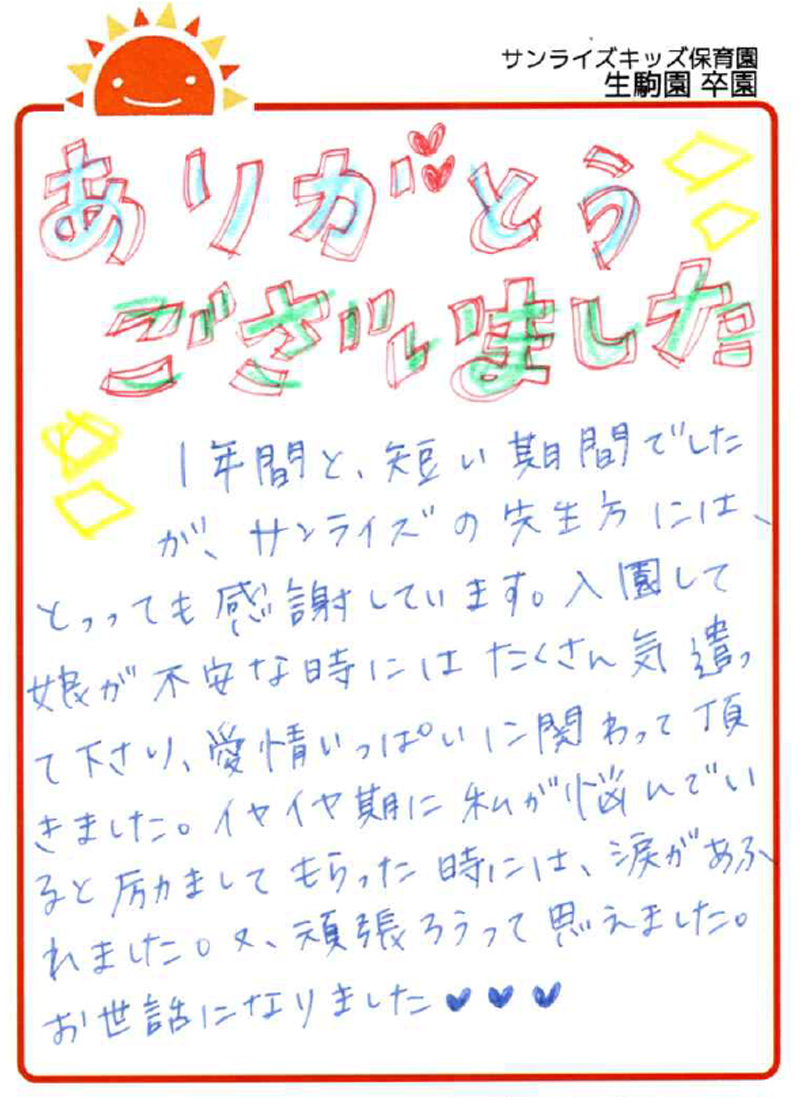 サンライズキッズ保育園
生駒園 卒園
ありがとう
ございました
1年間と、短い期間でした
が、サンライズの先生方には、
とっっても感謝しています。入園して
娘が不安な時にはたくさん気遣っ
て下さり、愛情いっぱいに関わって頂
きました。イヤイヤ期に私が悩んでい
ると励ましてもらった時には、涙があふ
れました。又、頑張ろうって思えました。
お世話になりました♥♥♥